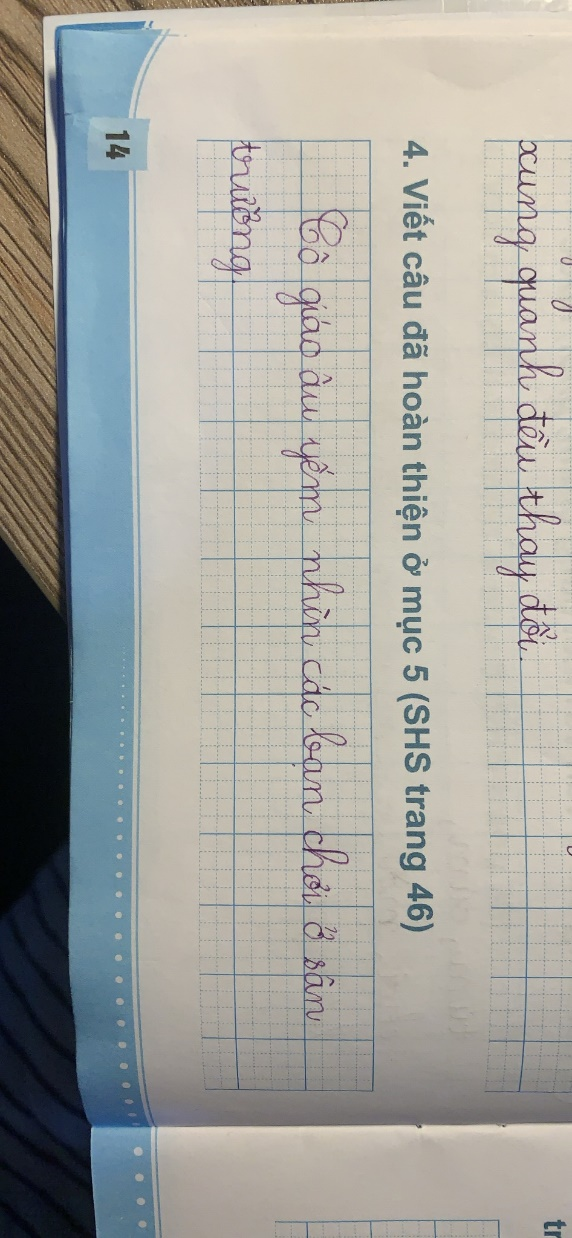 xung quanh đều thay đổi.
4. Viết câu đã hoàn thiện ở mục 5 (SHS trang 46)
Cô giáo âu yếm nhìn các bạn chơi ở sân
trường.
14